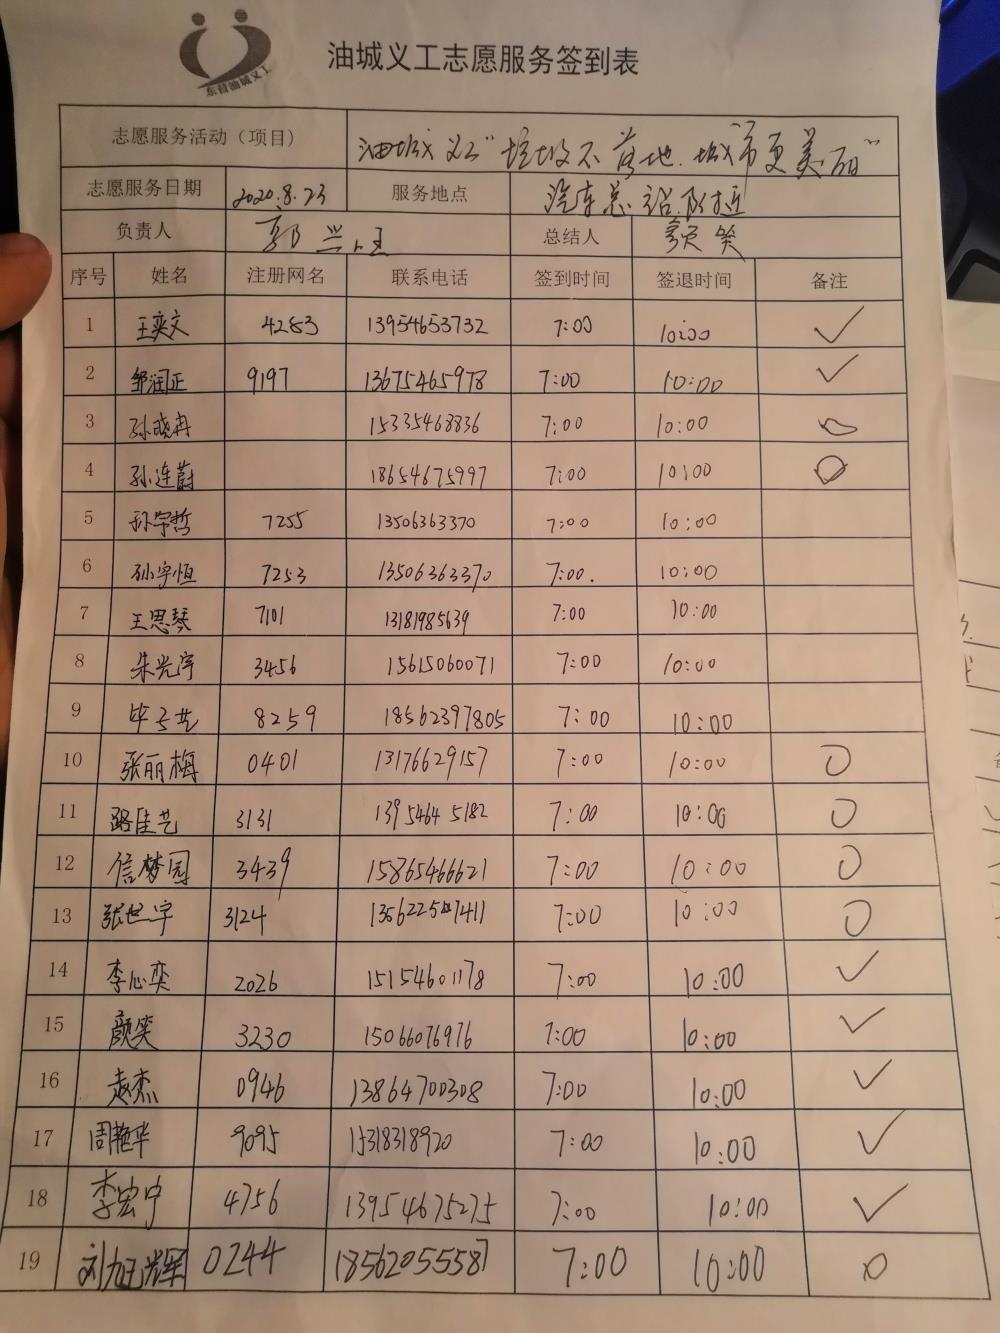 东营油城义工
油城义工志愿服务签到表
志愿服务活动（项目） 油城义工"垃圾不落地.城市更美丽"
志愿服务日期 2020.8.23 服务地点 汽车总站附近
负责人 郭兴旺 总结人 颜笑
序号 姓名 注册网名 联系电话 签到时间 签退时间 备注
1 王奕文 4283 13954653732 7:00 10:00 ✓
2 邹润正 9197 13675465978 7:00 10:00 ✓
3 孙晓冉 15335468836 7:00 10:00 ○
4 孙连蔚 18654675997 7:00 10:00 ○
5 孙宇哲 7255 13506363370 7:00 10:00
6 孙宇恒 7253 13506363370 7:00. 10:00
7 王思琴 7101 13181985639 7:00 10:00
8 朱光宇 3456 15615060071 7:00 10:00
9 毕子艺 8259 18562397805 7:00 10:00
10 张丽梅 0401 13176629157 7:00 10:00 ○
11 路佳艺 3131 13954645182 7:00 10:00 ○
12 信梦园 3439 15865466621 7:00 10:00 ○
13 张世宇 3124 7:00 10:00 ○
14 李心奕 2026 15154601178 7:00 10:00 ✓
15 颜笑 3230 15066076976 7:00 10:00 ✓
16 赵杰 0946 13864700308 7:00 10:00 ✓
17 周艳华 9095 15318318920 7:00 10:00 ✓
18 李宏宁 4756 13954675275 7:00 10:00 ✓
19 刘旭辉 0244 18562055587 7:00 10:00 ○